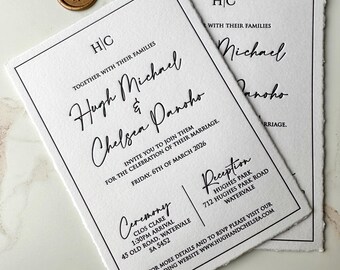 H|C
TOGETHER WITH THEIR FAMILIES
Hugh Michael
&
Chelsea Panoho
INVITE YOU TO JOIN THEM
FOR THE CELEBRATION OF THEIR MARRIAGE.
FRIDAY, 6TH OF MARCH 2026
Ceremony
CLOS CLARE
1:30PM ARRIVAL
45 OLD ROAD, WATERVALE
SA 5452
Reception
HUGHES PARK
712 HUGHES PARK ROAD
WATERVALE
FOR MORE DETAILS AND TO RSVP PLEASE VISIT OUR
WEDDING WEBSITE WWW.HUGHANDCHELSEA.COM
H|C
WITH THEIR FAMILIES
Michael
Panoho
TO JOIN THEM
OF THEIR MARRIAGE.
MARCH 2026